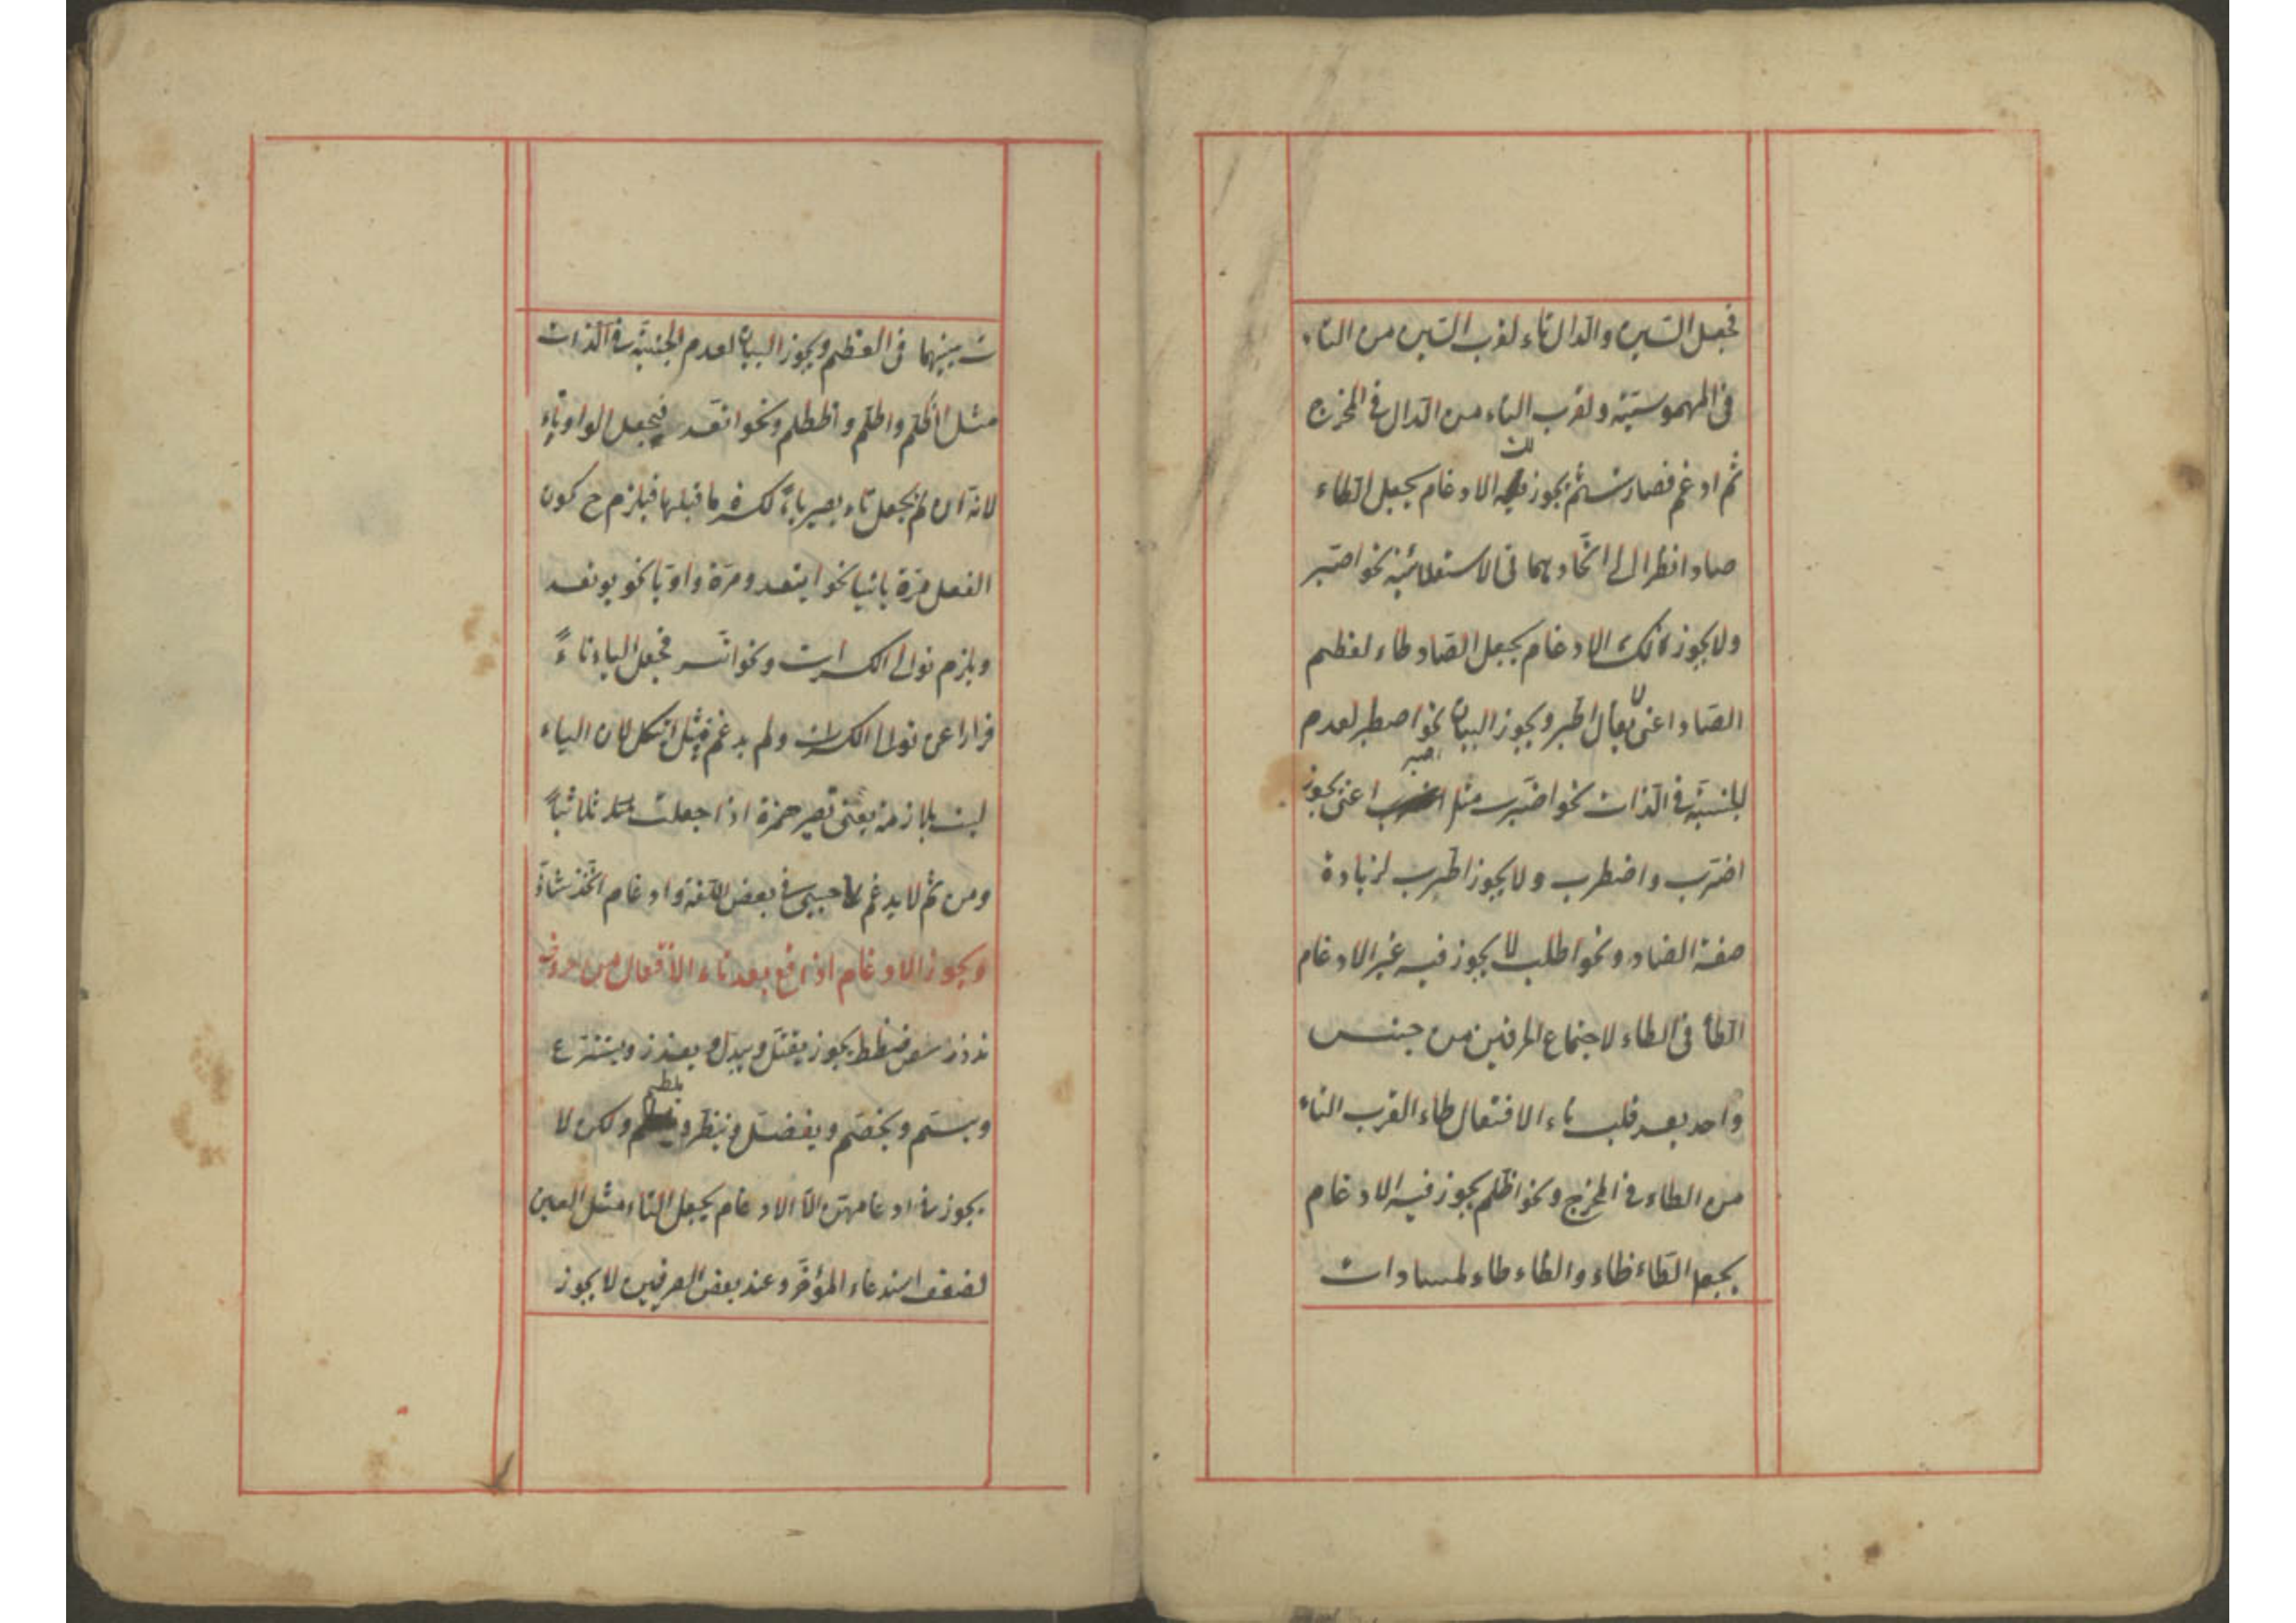 فجعل السين والدال تاء لقرب السين من التاء
فى المهموسية ولقرب التاء من الدال فى المخرج
ثم ادغم فصار ست ثم يجوز لك الادغام يجعل الطاء
صادا نظرا الى اتحادهما فى الاستعلائية نحو اصبر
ولا يجوز لك الادغام يجعل الصاد طاء لعظم
الصاد اعنى لا يقال اطبر ويجوز البيان نحو اصطبر لعدم
الجنسية فى الذات نحو اضرب مثل اصبر اعنى يجوز
اضرب واضطرب ولا يجوز اطرب لزيادة
صفة الضاد ونحو اطلب لا يجوز فيه غير الادغام
الطاء فى الطاء لاجتماع الحرفين من جنس
واحد بعد قلب تاء الافتعال طاء القرب التاء
من الطاء فى المخرج ونحو اظلم يجوز فيه الادغام
يجعل الطاء ظاء والظاء طاء لمساوات
ت بينهما فى العظم ويجوز البيان لعدم الجنسية فى الذات
مثل اظلم واطلم واظطلم ونحو اتقد فيجعل الواو تاء
لانه ان لم يجعل تاء يصير ياء لكسرة ما قبلها فيلزم ح كون
الفعل مرة يائيا نحو ايتقد ومرة واويا نحو يوتقد
ويلزم توالى الكسرات ونحو اتسر فجعل الياء تاء
فرارا عن توالى الكسرات ولم يدغم فى مثل ايتكل لان الياء
ليست بلازمة يعنى تصير همزة اذا جعلت ثلاثيا
ومن ثم لا يدغم حيى فى بعض اللغة وادغام اتخذ شاذ
ويجوز الادغام اذا وقع بعد تاء الافتعال من حروف
تدذز سصضطظ يجوز يقتل ويبدل ويعذر وينزع
ويبسم ويخصم ويفضل وينظر ويلطم ولكن لا
يجوز فى ادغامهن الا الادغام يجعل التاء مثل العين
لضعف استدعاء المؤخر وعند بعض الصرفيين لا يجوز